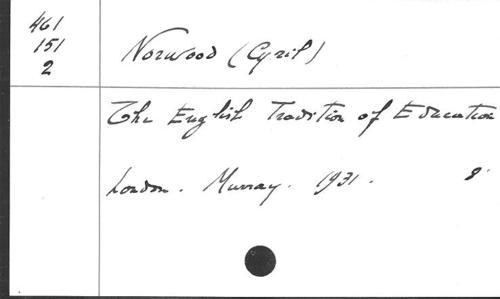 461
151
2
Norwood (Cyril)
The English Tradition of Education
London. Murray. 1931. 8°